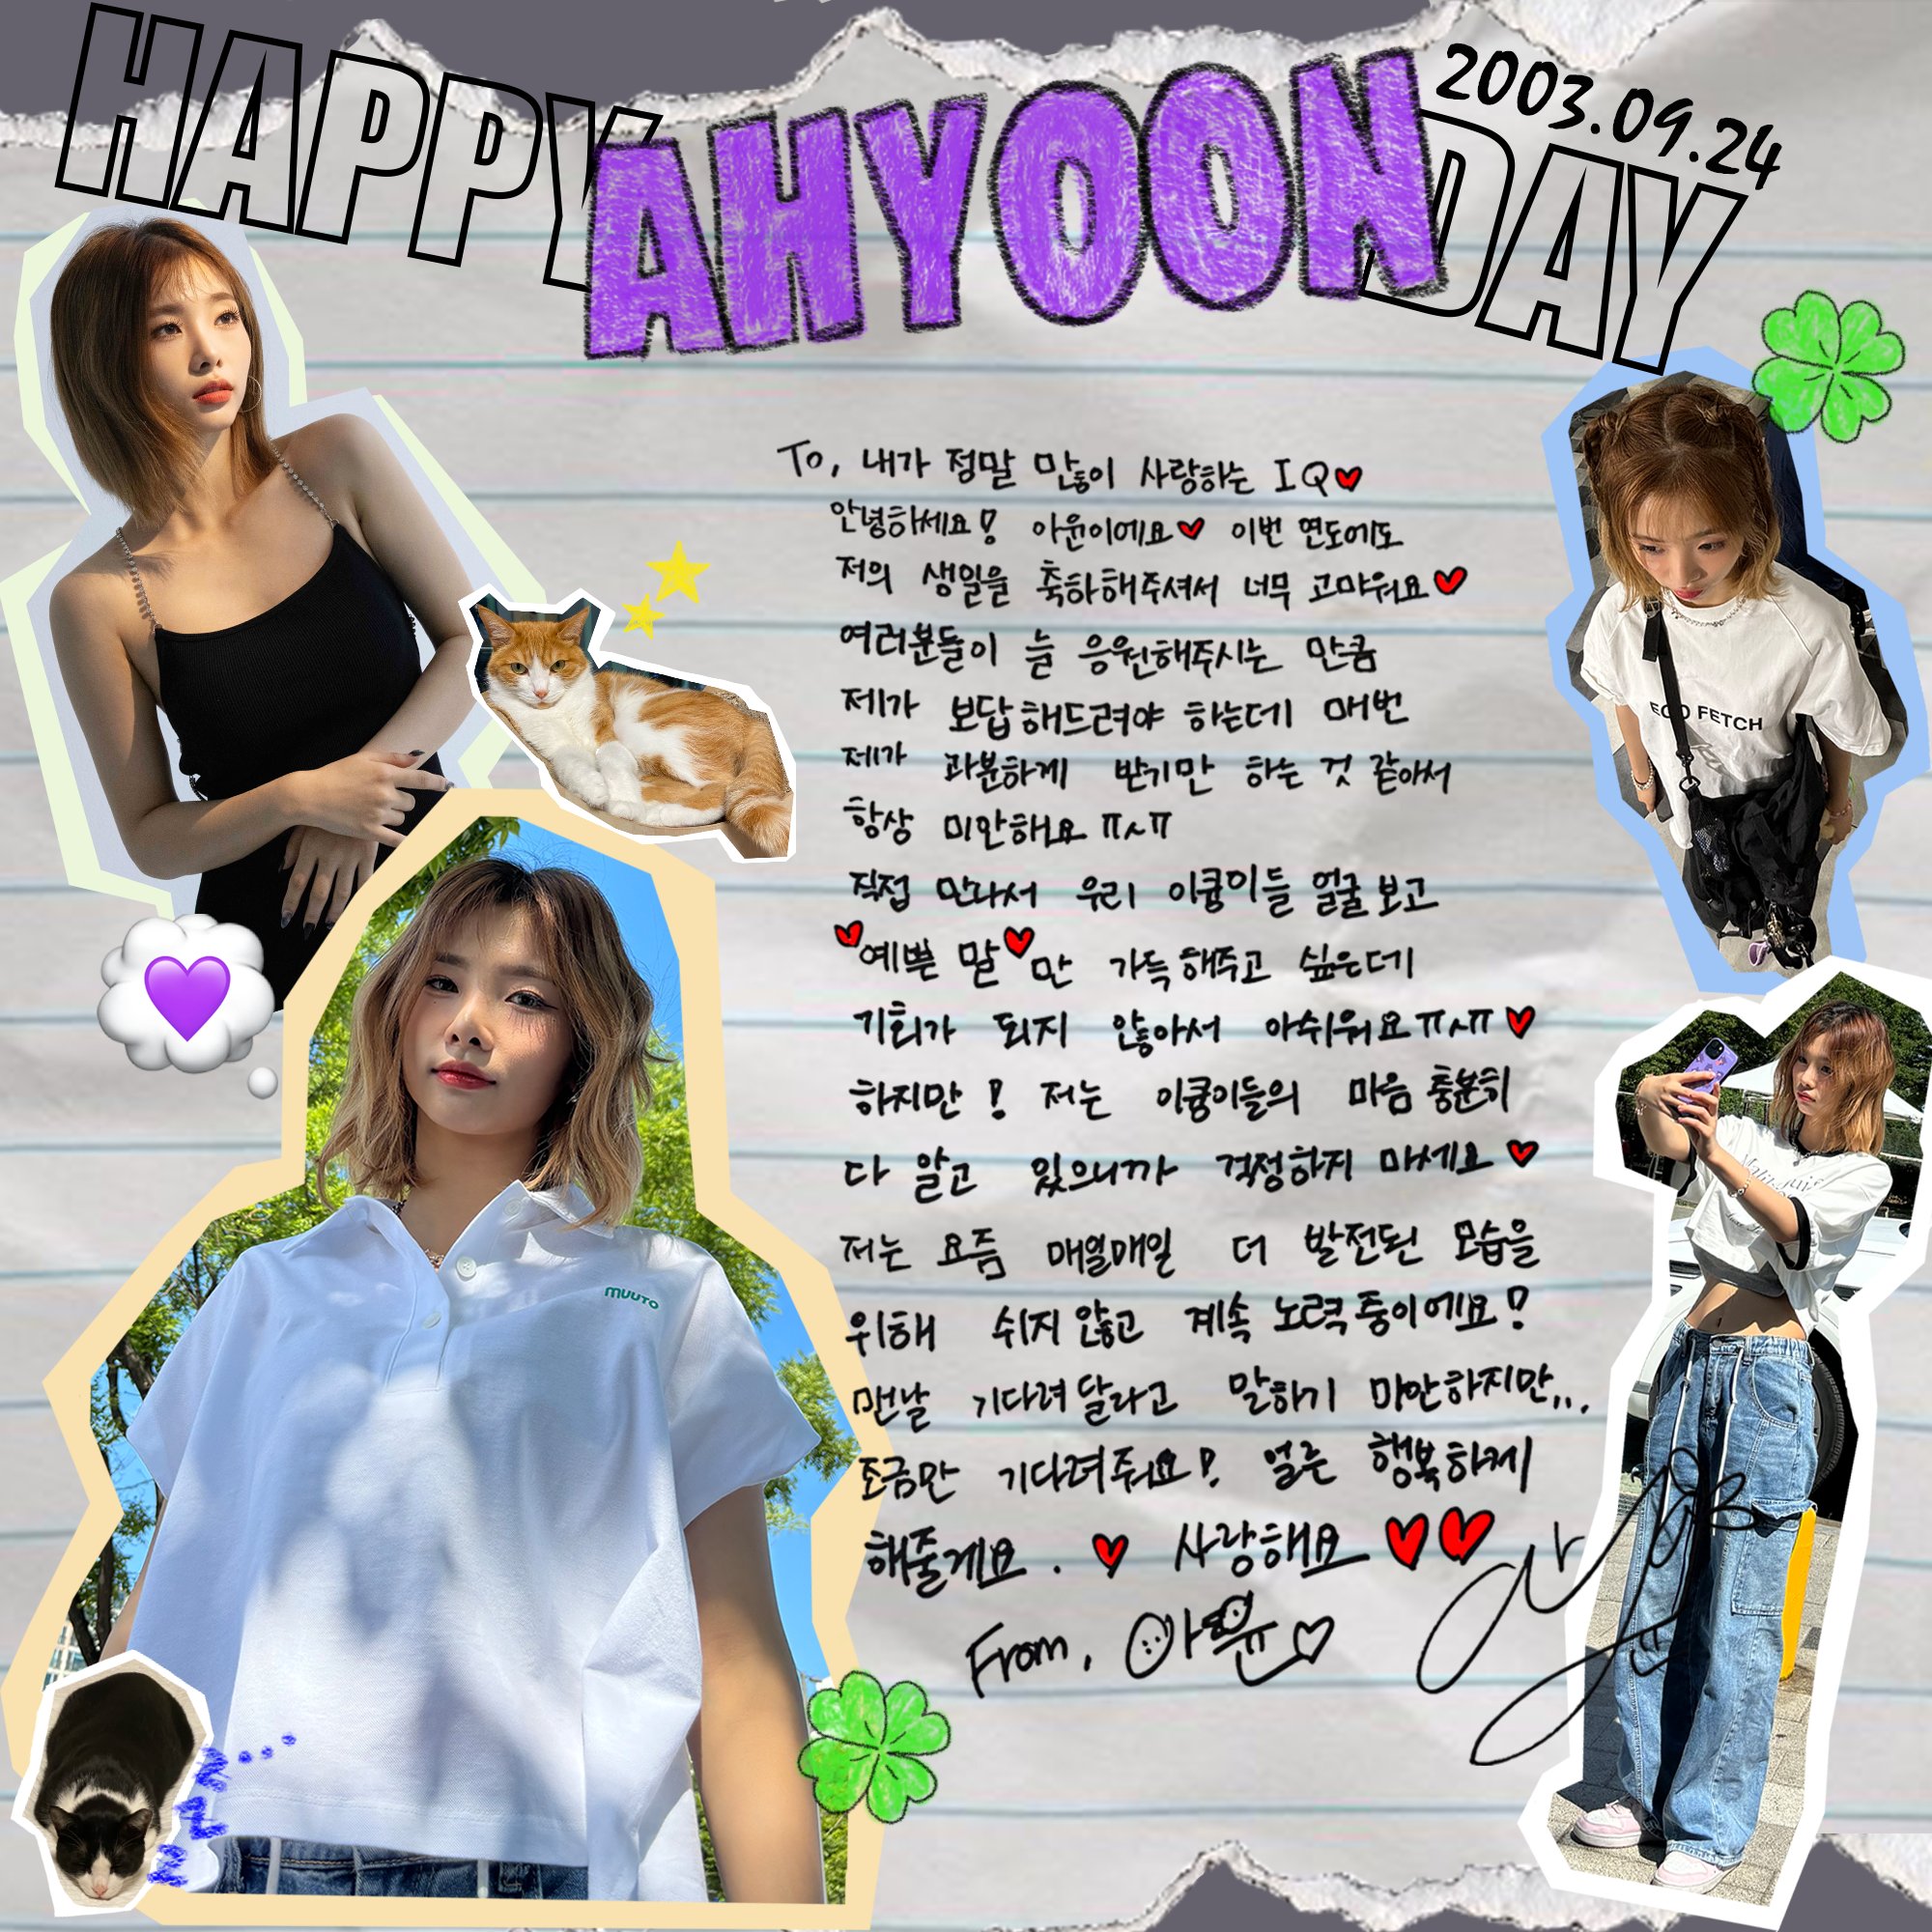 HAPPY AHYOON DAY
2003.09.24
To, 내가 정말 많이 사랑하는 IQ♥
안녕하세요! 아윤이에요♥ 이번 연도에도
저의 생일을 축하해주셔서 너무 고마워요♥
여러분들이 늘 응원해주시는 만큼
제가 보답해드려야 하는데 매번
제가 과분하게 받기만 하는 것 같아서
항상 미안해요 ㅠㅅㅠ
직접 만나서 우리 이큥이들 얼굴 보고
♥예쁜 말♥만 가득 해주고 싶은데
기회가 되지 않아서 아쉬워요ㅠㅅㅠ♥
하지만! 저는 이큥이들의 마음 충분히
다 알고 있으니까 걱정하지 마세요♥
저는 요즘 매일매일 더 발전된 모습을
위해 쉬지 않고 계속 노력 중이에요!
맨날 기다려 달라고 말하기 미안하지만...
조금만 기다려줘요! 얼른 행복하게
해줄게요. ♥ 사랑해요 ♥♥
From, 아윤♡
MUUTO
FETCH
z z z...